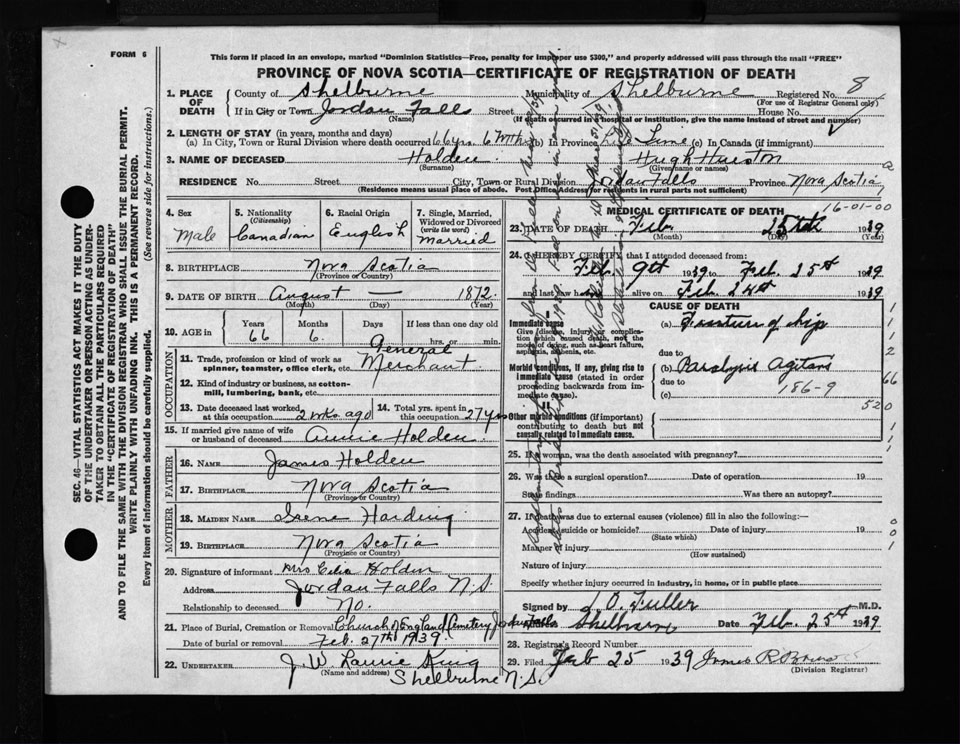 FORM 6
This form if placed in an envelope, marked "Dominion Statistics—Free, penalty for improper use $300," and properly addressed will pass through the mail "FREE"
PROVINCE OF NOVA SCOTIA—CERTIFICATE OF REGISTRATION OF DEATH
1. PLACE OF DEATH County of Shelburne Municipality of Shelburne Registered No. 8
(For use of Registrar General only)
If in City or Town Jordan Falls Street House No.
(Name) (If death occurred in hospital or institution, give the name instead of street and number)
2. LENGTH OF STAY (in years, months and days)
(a) In City, Town or Rural Division where death occurred 66 yrs 6 Mths (b) In Province Life Time (c) In Canada (if immigrant)
3. NAME OF DECEASED Holden Hugh
(Surname) (Given name or names)
RESIDENCE No. Street City, Town or Rural Division Jordan Falls Province Nova Scotia
(Residence means usual place of abode. Post Office Address for residents in rural parts not sufficient)
SEC. 46—VITAL STATISTICS ACT MAKES IT THE DUTY
OF THE UNDERTAKER OR PERSON ACTING AS UNDER-
TAKER TO OBTAIN ALL THE PARTICULARS REQUIRED
IN THE "CERTIFICATE OF REGISTRATION OF DEATH"
AND TO FILE THE SAME WITH THE DIVISION REGISTRAR WHO SHALL ISSUE THE BURIAL PERMIT.
WRITE PLAINLY WITH UNFADING INK. THIS IS A PERMANENT RECORD.
Every item of information should be carefully supplied. (See reverse side for instructions.)
4. Sex 5. Nationality (Citizenship) 6. Racial Origin 7. Single, Married, Widowed or Divorced (write the word)
Male Canadian English Married
8. BIRTHPLACE Nova Scotia
(Province or Country)
9. DATE OF BIRTH August — 1872
(Month) (Day) (Year)
10. AGE in Years Months Days If less than one day old
66 6. hrs. or min.
OCCUPATION
11. Trade, profession or kind of work as spinner, teamster, office clerk, etc. General Merchant
12. Kind of industry or business, as cotton-mill, lumbering, bank, etc.
13. Date deceased last worked at this occupation 2 wks ago
14. Total yrs. spent in this occupation 27 yrs
15. If married give name of wife or husband of deceased Annie Holden
FATHER
16. NAME James Holden
17. BIRTHPLACE Nova Scotia
(Province or Country)
MOTHER
18. MAIDEN NAME Irene Harding
19. BIRTHPLACE Nova Scotia
(Province or Country)
20. Signature of informant Mrs Celia Holden
Address Jordan Falls N.S.
Relationship to deceased No.
21. Place of Burial, Cremation or Removal Church of England Cemetery Jordan Falls
Date of burial or removal Feb. 27th 1939.
22. UNDERTAKER J. W. Laurie King
(Name and address) Shelburne N.S.
MEDICAL CERTIFICATE OF DEATH 16-01-00
23. DATE OF DEATH Feb 25th 1939
(Month) (Day) (Year)
24. I HEREBY CERTIFY that I attended deceased from:
Feb. 9th 1939 to Feb. 25th 1939
and last saw h alive on Feb. 24th 1939
CAUSE OF DEATH
Immediate cause
Give disease, injury or complication which caused death, not the mode of dying, such as heart failure, asphyxia, asthenia, etc.
(a) Fracture of hip
due to
Morbid conditions, if any, giving rise to immediate cause (stated in order proceeding backwards from immediate cause).
(b) Paralysis Agitans
due to 186-9
(c)
Other morbid conditions (if important) contributing to death but not causally related to immediate cause.
66
520
25. If a woman, was the death associated with pregnancy?
26. Was there a surgical operation? Date of operation 19
State findings Was there an autopsy?
27. If death was due to external causes (violence) fill in also the following:—
Accident, suicide or homicide? Date of injury 19
(State which)
Manner of injury
(How sustained)
Nature of injury
Specify whether injury occurred in industry, in home, or in public place
Signed by L. O. Fuller M.D.
Address Shelburne Date Feb. 25th 1939
28. Registrar's Record Number
29. Filed Feb 25 1939 James R
(Division Registrar)